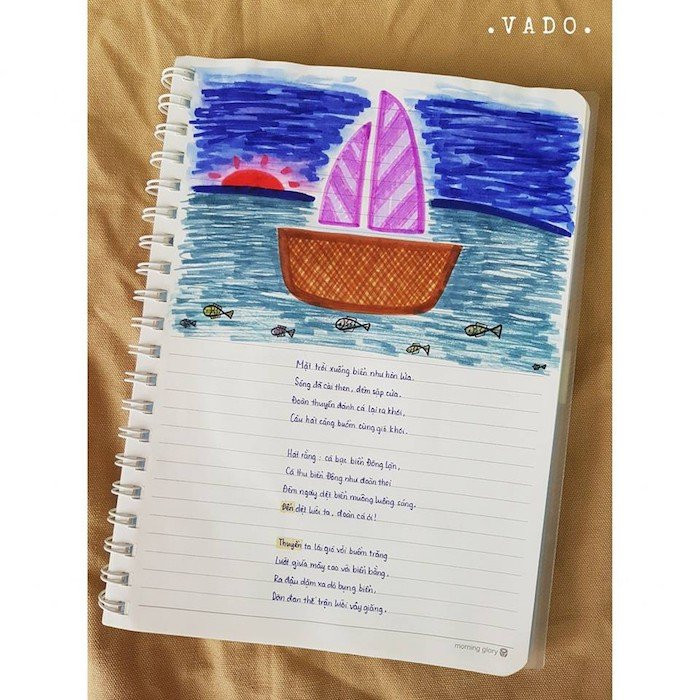 .VADO.
Mặt trời xuống biển như hòn lửa.
Sóng đã cài then, đêm sập cửa.
Đoàn thuyền đánh cá lại ra khơi,
Câu hát căng buồm cùng gió khơi.
Hát rằng: cá bạc biển Đông lặn,
Cá thu biển Đông như đoàn thoi
Đêm ngày dệt biển muôn luồng sáng.
Đến dệt lưới ta, đoàn cá ơi!
Thuyền ta lái gió với buồm trăng
Lướt giữa mây cao với biển bằng,
Ra đậu dặm xa dò bụng biển,
Dàn đan thế trận lưới vây giăng.
morning glory